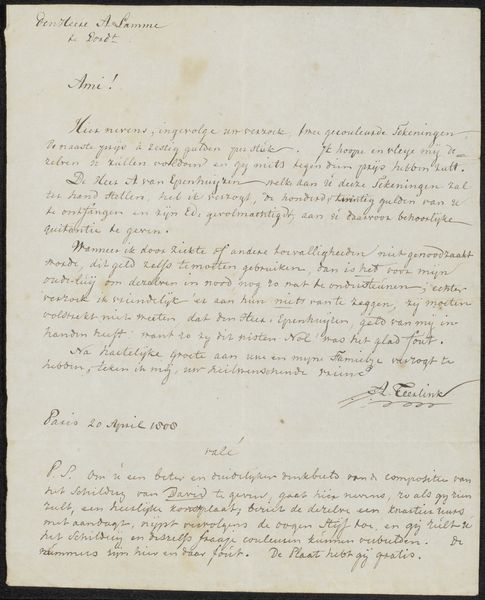 den Heere A. Lamme
te Dordt
Ami!
Hier nevens, ingevolge uw verzoek, twee gecouleurde Tekeningen
de naaste prijs à zestig gulden per stuk. Ik hoope en vleye mij de-
zelven te zullen voldoen en gij niets tegen dien prijs hebben zult.
De Heer A van Epenhuijzen welke aan u deze Tekeningen zal
ter hand stellen, heb ik verzogt, de honderd twintig gulden van u
te ontfangen en zijn Ed. gevolmachtigd, aan u daarvoor behoorlijke
quitantie te geven.
Wanneer ik door ziekte of andere toevalligheden niet genoodzaakt
worde, dit geld zelfs te moeten gebruiken, dan is het voor mijn
ouderlui om dezelven in nood nog zo wat te ondersteunen; echter
verzoek ik vriendelijk er aan hun niets van te zeggen, zij moeten
volstrekt niet weeten dat den Heer Epenhuijzen, geld van mij in
handen heeft want zo zij dit wisten Nol! was het glad fout.
Na hartelijke groete aan uwe en mijne Familje verzogt te
hebben, teken ik mij, uw heilwenschende vriend
A. Teerlink
Paris 20 April 1808
valé
P.S. Om u een beter en duidelijker denkbeeld van de compositie van
het Schilderij van David te geven, gaat hier nevens, zo als gij zien
zult, een heerlijke konstplaat, beziet de dezelve een knaster uurs
met aandagt, nijpt vervolgens de oogen stijf toe, en gij zult u
het Schilderij en deszelfs fraaije couleuren kunnen verbeelden. De
nummers zijn hier en daar fout. De Plaat hebt gij gratis.